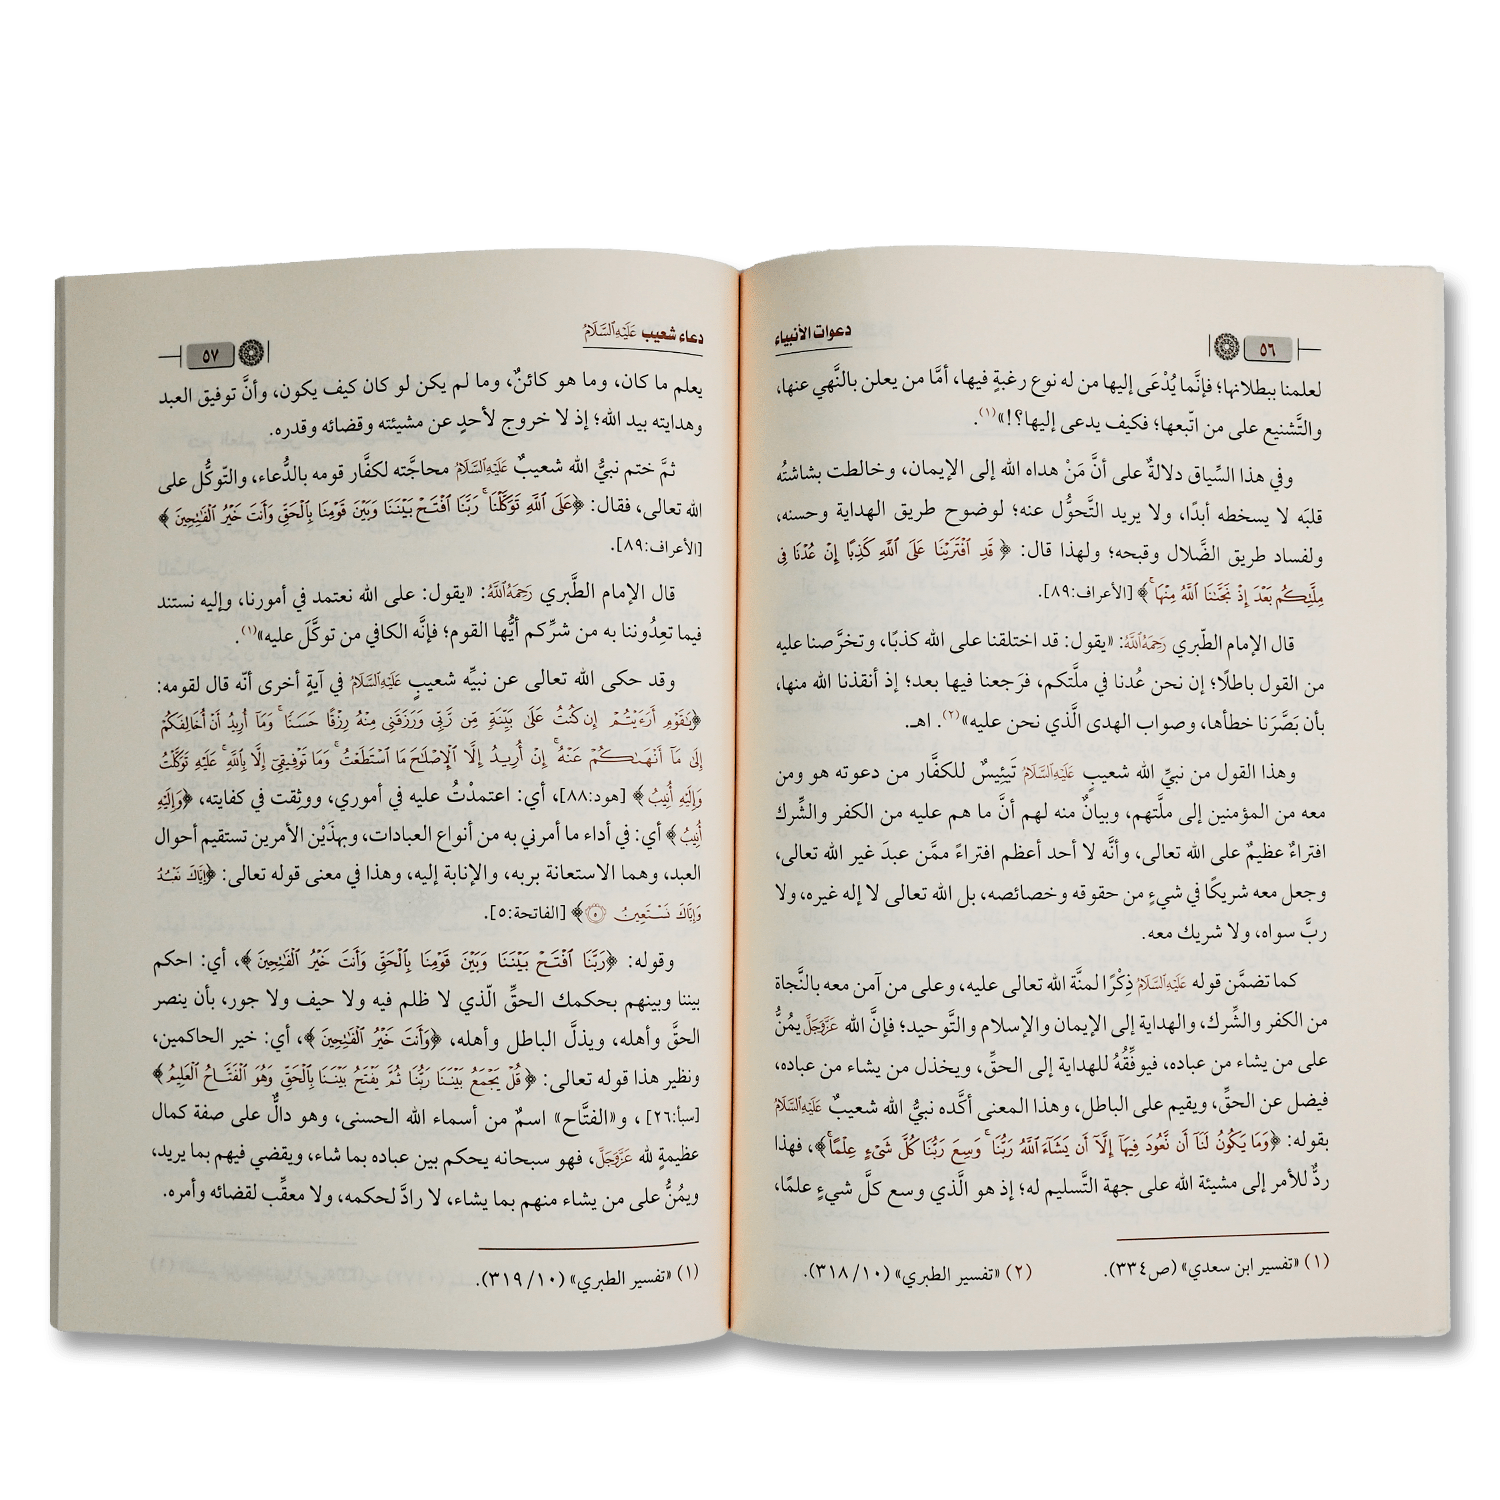 ٥٦
دعوات الأنبياء
لعلمنا ببطلانها؛ فإنَّما يُدْعَى إليها من له نوع رغبةٍ فيها، أمَّا من يعلن بالنَّهي عنها،
والتَّشنيع على من اتّبعها؛ فكيف يدعى إليها؟!»(١).
وفي هذا السِّياق دلالةٌ على أنَّ مَنْ هداه الله إلى الإيمان، وخالطت بشاشتُه
قلبَه لا يسخطه أبدًا، ولا يريد التَّحوُّل عنه؛ لوضوح طريق الهداية وحسنه،
ولفساد طريق الضَّلال وقبحه؛ ولهذا قال: ﴿قَدِ ٱفْتَرَيْنَا عَلَى ٱللَّهِ كَذِبًا إِنْ عُدْنَا فِى
مِلَّتِكُم بَعْدَ إِذْ نَجَّىٰنَا ٱللَّهُ مِنْهَا ۚ﴾ [الأعراف:٨٩].
قال الإمام الطّبري رَحِمَهُ ٱللَّهُ: «يقول: قد اختلقنا على الله كذبًا، وتخرَّصنا عليه
من القول باطلًا؛ إن نحن عُدنا في ملَّتكم، فرَجعنا فيها بعد؛ إذ أنقذنا الله منها،
بأن بَصَّرَنا خطأها، وصواب الهدى الَّذي نحن عليه»(٢). اهـ.
وهذا القول من نبيِّ الله شعيبٍ عَلَيْهِ ٱلسَّلَامُ تَيئِيسٌ للكفَّار من دعوته هو ومن
معه من المؤمنين إلى ملَّتهم، وبيانٌ منه لهم أنَّ ما هم عليه من الكفر والشِّرك
افتراءٌ عظيمٌ على الله تعالى، وأنَّه لا أحد أعظم افتراءً ممَّن عبدَ غير الله تعالى،
وجعل معه شريكًا في شيءٍ من حقوقه وخصائصه، بل الله تعالى لا إله غيره، ولا
ربَّ سواه، ولا شريك معه.
كما تضمَّن قوله عَلَيْهِ ٱلسَّلَامُ ذِكْرًا لمنَّة الله تعالى عليه، وعلى من آمن معه بالنَّجاة
من الكفر والشِّرك، والهداية إلى الإيمان والإسلام والتَّوحيد؛ فإنَّ الله عَزَّوَجَلَّ يمُنُّ
على من يشاء من عباده، فيوفِّقُهُ للهداية إلى الحقِّ، ويخذل من يشاء من عباده،
فيضل عن الحقِّ، ويقيم على الباطل، وهذا المعنى أكَّده نبيُّ الله شعيبٌ عَلَيْهِ ٱلسَّلَامُ
بقوله: ﴿وَمَا يَكُونُ لَنَآ أَن نَّعُودَ فِيهَآ إِلَّآ أَن يَشَآءَ ٱللَّهُ رَبُّنَا ۚ وَسِعَ رَبُّنَا كُلَّ شَىْءٍ عِلْمًا ۚ﴾، فهذا
ردٌّ للأمر إلى مشيئة الله على جهة التَّسليم له؛ إذ هو الَّذي وسع كلَّ شيءٍ علمًا،
(١) «تفسير ابن سعدي» (ص٣٣٤). (٢) «تفسير الطبري» (٣١٨/١٠).
دعاء شعيب عَلَيْهِ ٱلسَّلَامُ
٥٧
يعلم ما كان، وما هو كائنٌ، وما لم يكن لو كان كيف يكون، وأنَّ توفيق العبد
وهدايته بيد الله؛ إذ لا خروج لأحدٍ عن مشيئته وقضائه وقدره.
ثمَّ ختم نبيُّ الله شعيبٌ عَلَيْهِ ٱلسَّلَامُ محاجَّته لكفَّار قومه بالدُّعاء، والتّوكُّل على
الله تعالى، فقال: ﴿عَلَى ٱللَّهِ تَوَكَّلْنَا ۚ رَبَّنَا ٱفْتَحْ بَيْنَنَا وَبَيْنَ قَوْمِنَا بِٱلْحَقِّ وَأَنتَ خَيْرُ ٱلْفَٰتِحِينَ﴾
[الأعراف:٨٩].
قال الإمام الطَّبري رَحِمَهُ ٱللَّهُ: «يقول: على الله نعتمد في أمورنا، وإليه نستند
فيما تعِدُوننا به من شرِّكم أيُّها القوم؛ فإنَّه الكافي من توكَّلَ عليه»(١).
وقد حكى الله تعالى عن نبيِّه شعيبٍ عَلَيْهِ ٱلسَّلَامُ في آيةٍ أخرى أنّه قال لقومه:
﴿يَٰقَوْمِ أَرَءَيْتُمْ إِن كُنتُ عَلَىٰ بَيِّنَةٍ مِّن رَّبِّى وَرَزَقَنِى مِنْهُ رِزْقًا حَسَنًا ۚ وَمَآ أُرِيدُ أَنْ أُخَالِفَكُمْ
إِلَىٰ مَآ أَنْهَىٰكُمْ عَنْهُ ۚ إِنْ أُرِيدُ إِلَّا ٱلْإِصْلَٰحَ مَا ٱسْتَطَعْتُ ۚ وَمَا تَوْفِيقِىٓ إِلَّا بِٱللَّهِ ۚ عَلَيْهِ تَوَكَّلْتُ
وَإِلَيْهِ أُنِيبُ﴾ [هود:٨٨]، أي: اعتمدْتُ عليه في أموري، ووثِقت في كفايته، ﴿وَإِلَيْهِ
أُنِيبُ﴾ أي: في أداء ما أمرني به من أنواع العبادات، وبهذَيْن الأمرين تستقيم أحوال
العبد، وهما الاستعانة بربه، والإنابة إليه، وهذا في معنى قوله تعالى: ﴿إِيَّاكَ نَعْبُدُ
وَإِيَّاكَ نَسْتَعِينُ ٥﴾ [الفاتحة:٥].
وقوله: ﴿رَبَّنَا ٱفْتَحْ بَيْنَنَا وَبَيْنَ قَوْمِنَا بِٱلْحَقِّ وَأَنتَ خَيْرُ ٱلْفَٰتِحِينَ﴾، أي: احكم
بيننا وبينهم بحكمك الحقِّ الّذي لا ظلم فيه ولا حيف ولا جور، بأن ينصر
الحقَّ وأهله، ويذلَّ الباطل وأهله، ﴿وَأَنتَ خَيْرُ ٱلْفَٰتِحِينَ﴾، أي: خير الحاكمين،
ونظير هذا قوله تعالى: ﴿قُلْ يَجْمَعُ بَيْنَنَا رَبُّنَا ثُمَّ يَفْتَحُ بَيْنَنَا بِٱلْحَقِّ وَهُوَ ٱلْفَتَّاحُ ٱلْعَلِيمُ﴾
[سبأ:٢٦]، و«الفتَّاح» اسمٌ من أسماء الله الحسنى، وهو دالٌّ على صفة كمال
عظيمةٍ لله عَزَّوَجَلَّ، فهو سبحانه يحكم بين عباده بما شاء، ويقضي فيهم بما يريد،
ويمُنُّ على من يشاء منهم بما يشاء، لا رادَّ لحكمه، ولا معقِّب لقضائه وأمره.
(١) «تفسير الطبري» (٣١٩/١٠).